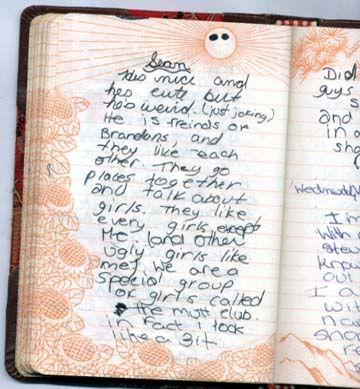 Sean
hes nice and
hes cute but
hes weird. (just joking)
He is freinds or
Brandons, and
they like each
other. They go
places together
and talk about
girls. They like
every girls except
Me, (and other
ugly girls like
me) we are a
special group
of girls called
the mutt club.
In fact I look
like a 3it.
Did
guys
s
and
in
sho
Wednesday
I
With
stew
know
out
I a
wi
no
sho
ro